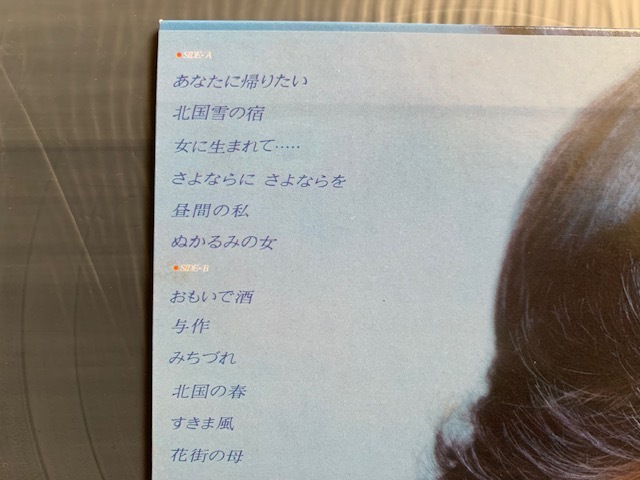 ●SIDE-A
あなたに帰りたい
北国雪の宿
女に生まれて‥‥‥
さよならに さよならを
昼間の私
ぬかるみの女
●SIDE-B
おもいで酒
与作
みちづれ
北国の春
すきま風
花街の母